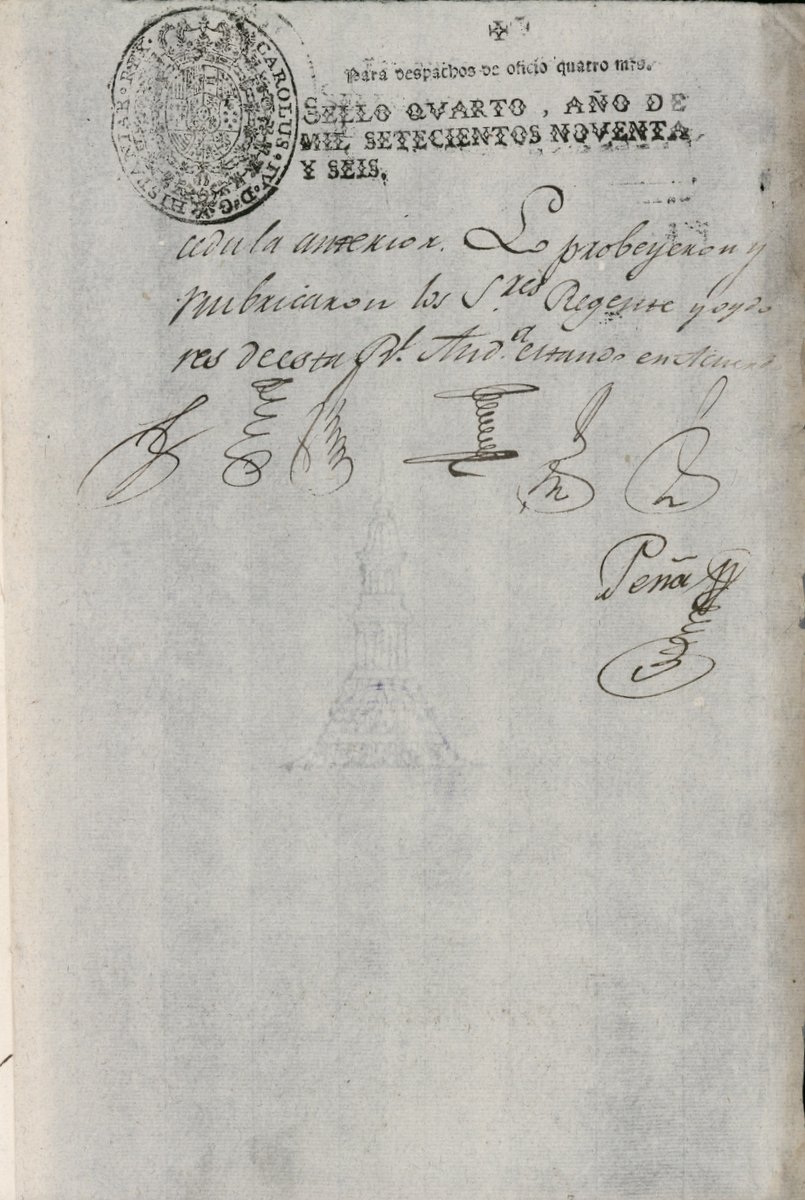 CAROLUS · IV · D · G · HISPANIAR · REX ·
Para despachos de oficio quatro mrs.
SELLO QVARTO, AÑO DE
MIL SETECIENTOS NOVENTA
Y SEIS.
cedula anterior. Lo probeyeron y
rubricaron los S.res Regente y oydo
res de esta Rl. Aud.a estando en Acuerdo
Peña